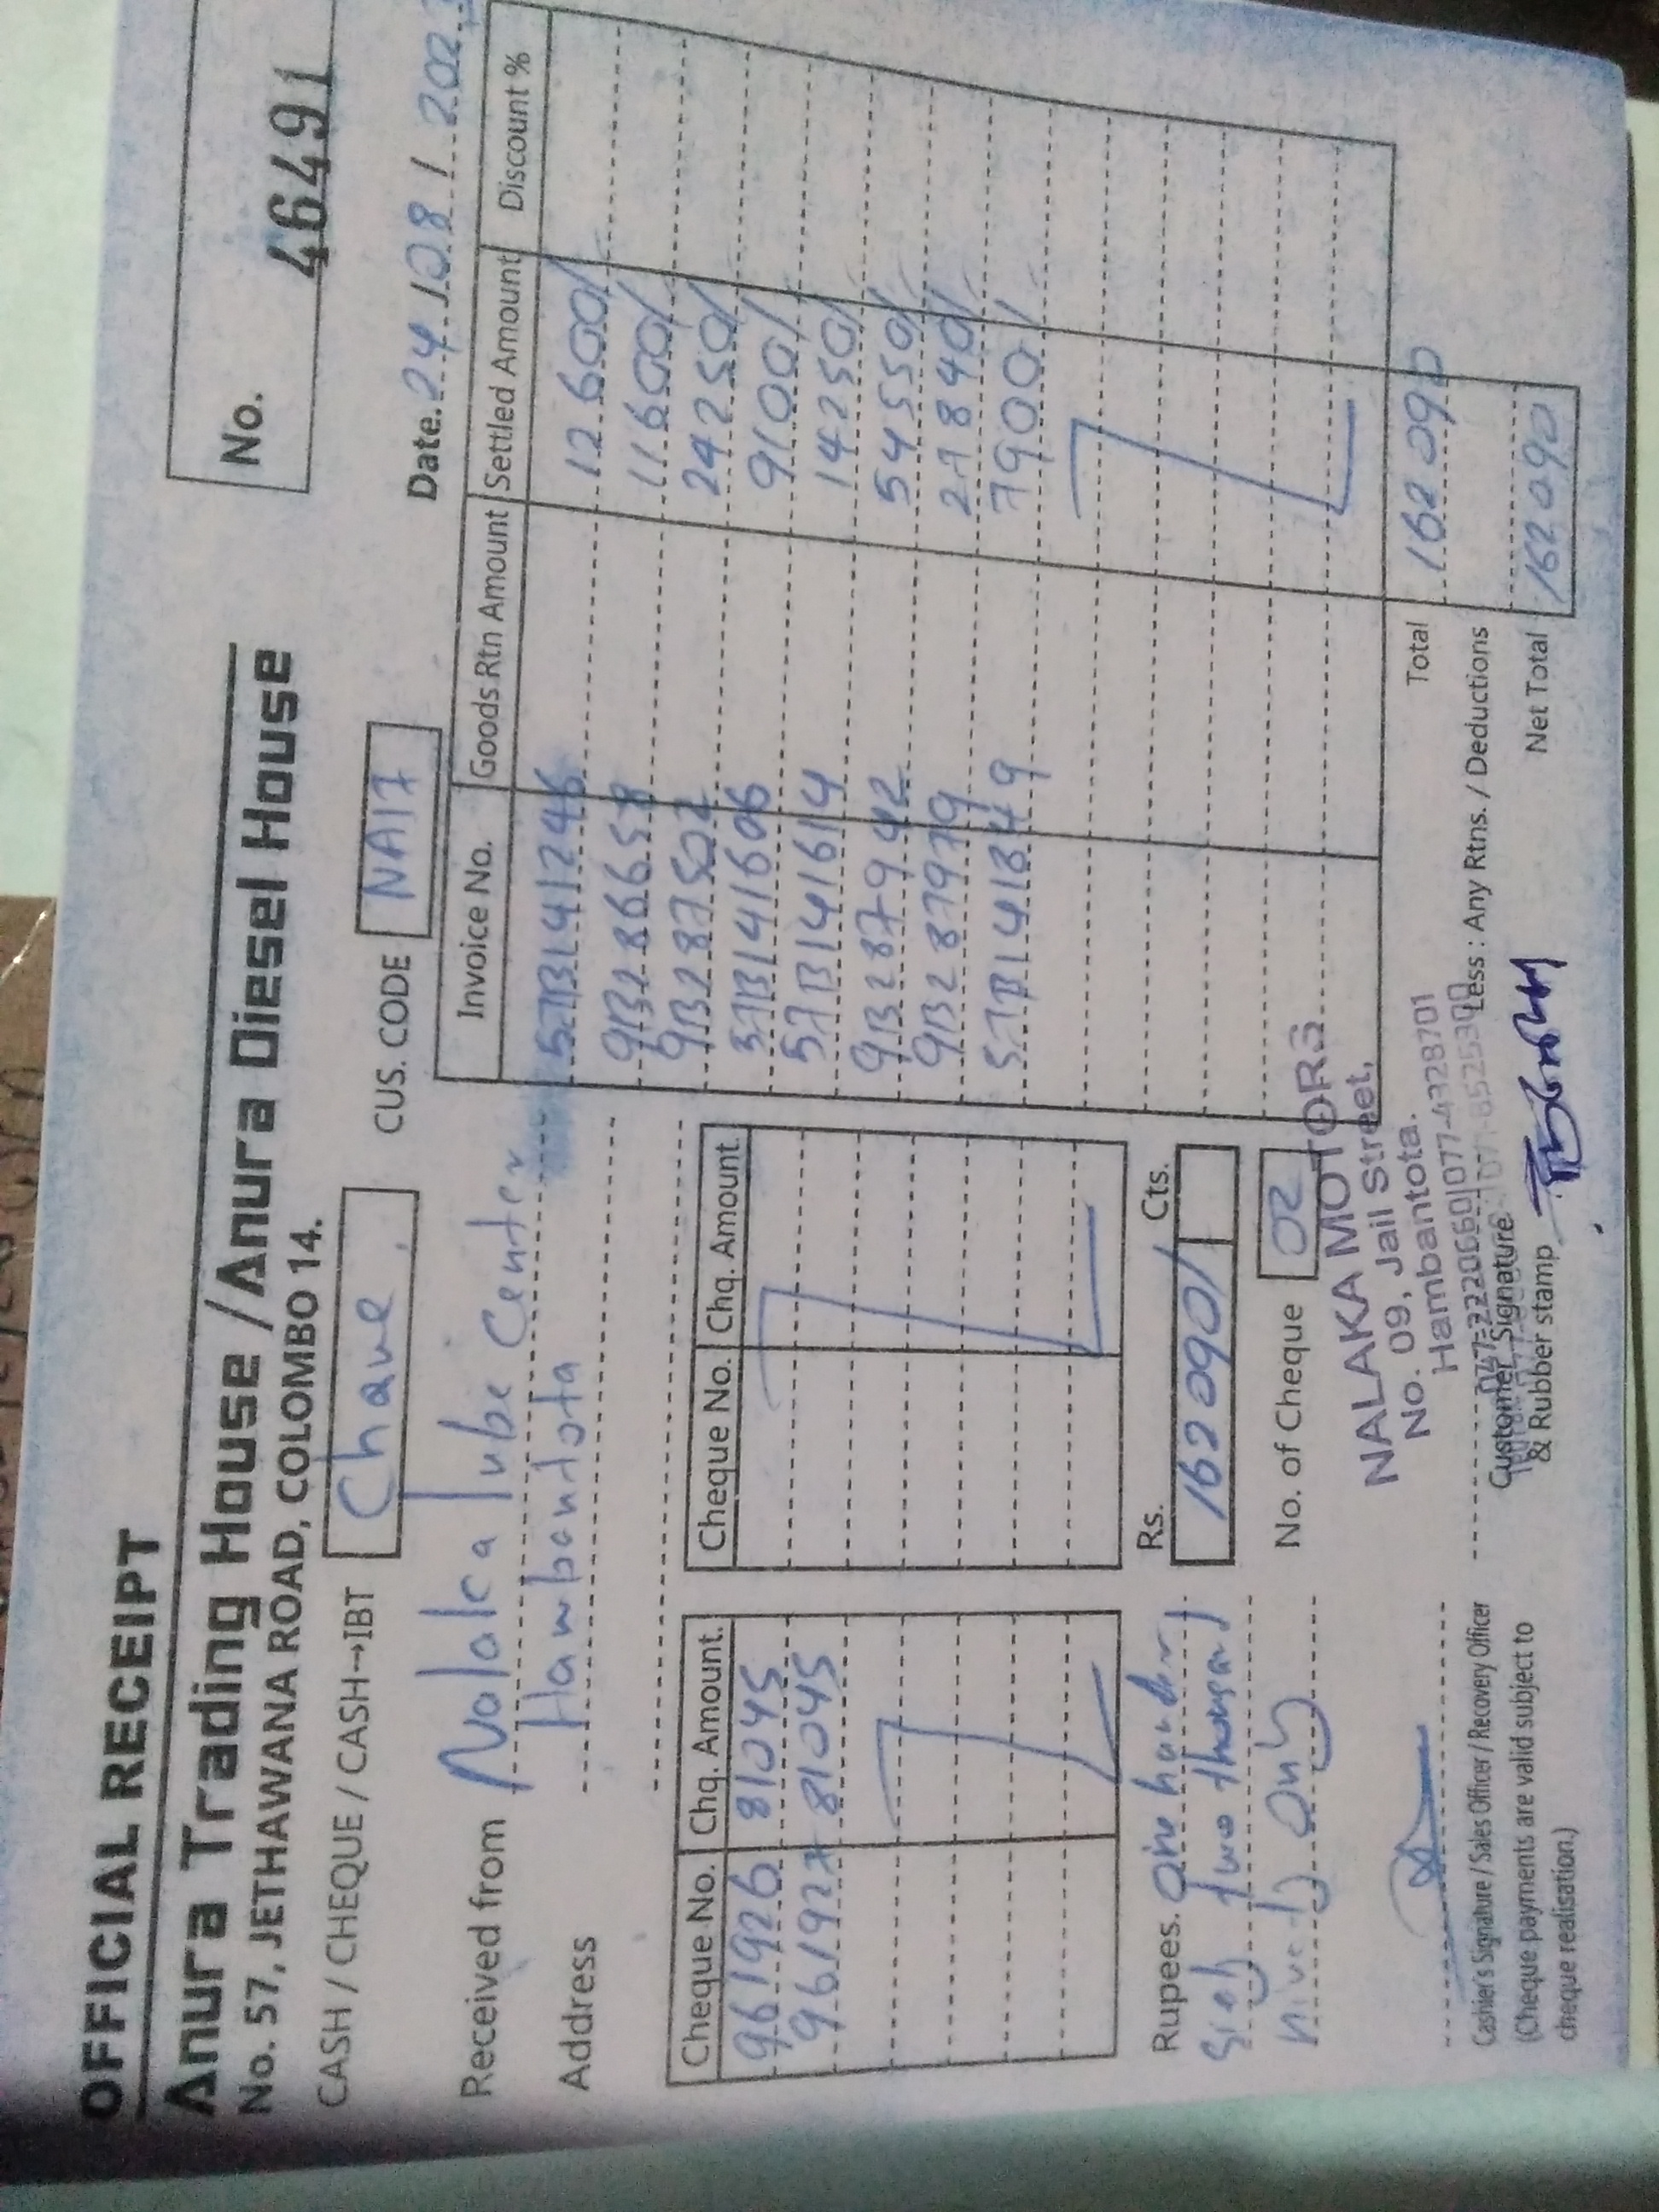 OFFICIAL RECEIPT
Anura Trading House / Anura Diesel House
No. 57, JETHAWANA ROAD, COLOMBO 14.
No. 46491
CASH / CHEQUE / CASH→IBT Chaque
CUS. CODE NA17
Date. 24 / 08 / 202
Received from Nalaka Tube Center
Address Hambantota
Cheque No. Chq. Amount.
961926 81045
961927 81045
Cheque No. Chq. Amount.
Rupees. One hundr
Sixty two thousand
ninety Only
Rs. Cts.
162090/
No. of Cheque 02
Invoice No. Goods Rtn Amount Settled Amount Discount %
57B141246 12600/
9B286658 11600/
9B287502 24250/
57B141606 9100/
57B141614 14250/
9B287942 54550/
9B287979 27840/
57B141849 7900/
Total 162090
Less : Any Rtns. / Deductions
Net Total 162090
NALAKA MOTORS
No. 09, Jail Street,
Hambantota.
047-2220660 077-4328701
Customer Signature
& Rubber stamp
Cashier's Signature / Sales Officer / Recovery Officer
(Cheque payments are valid subject to
cheque realisation.)